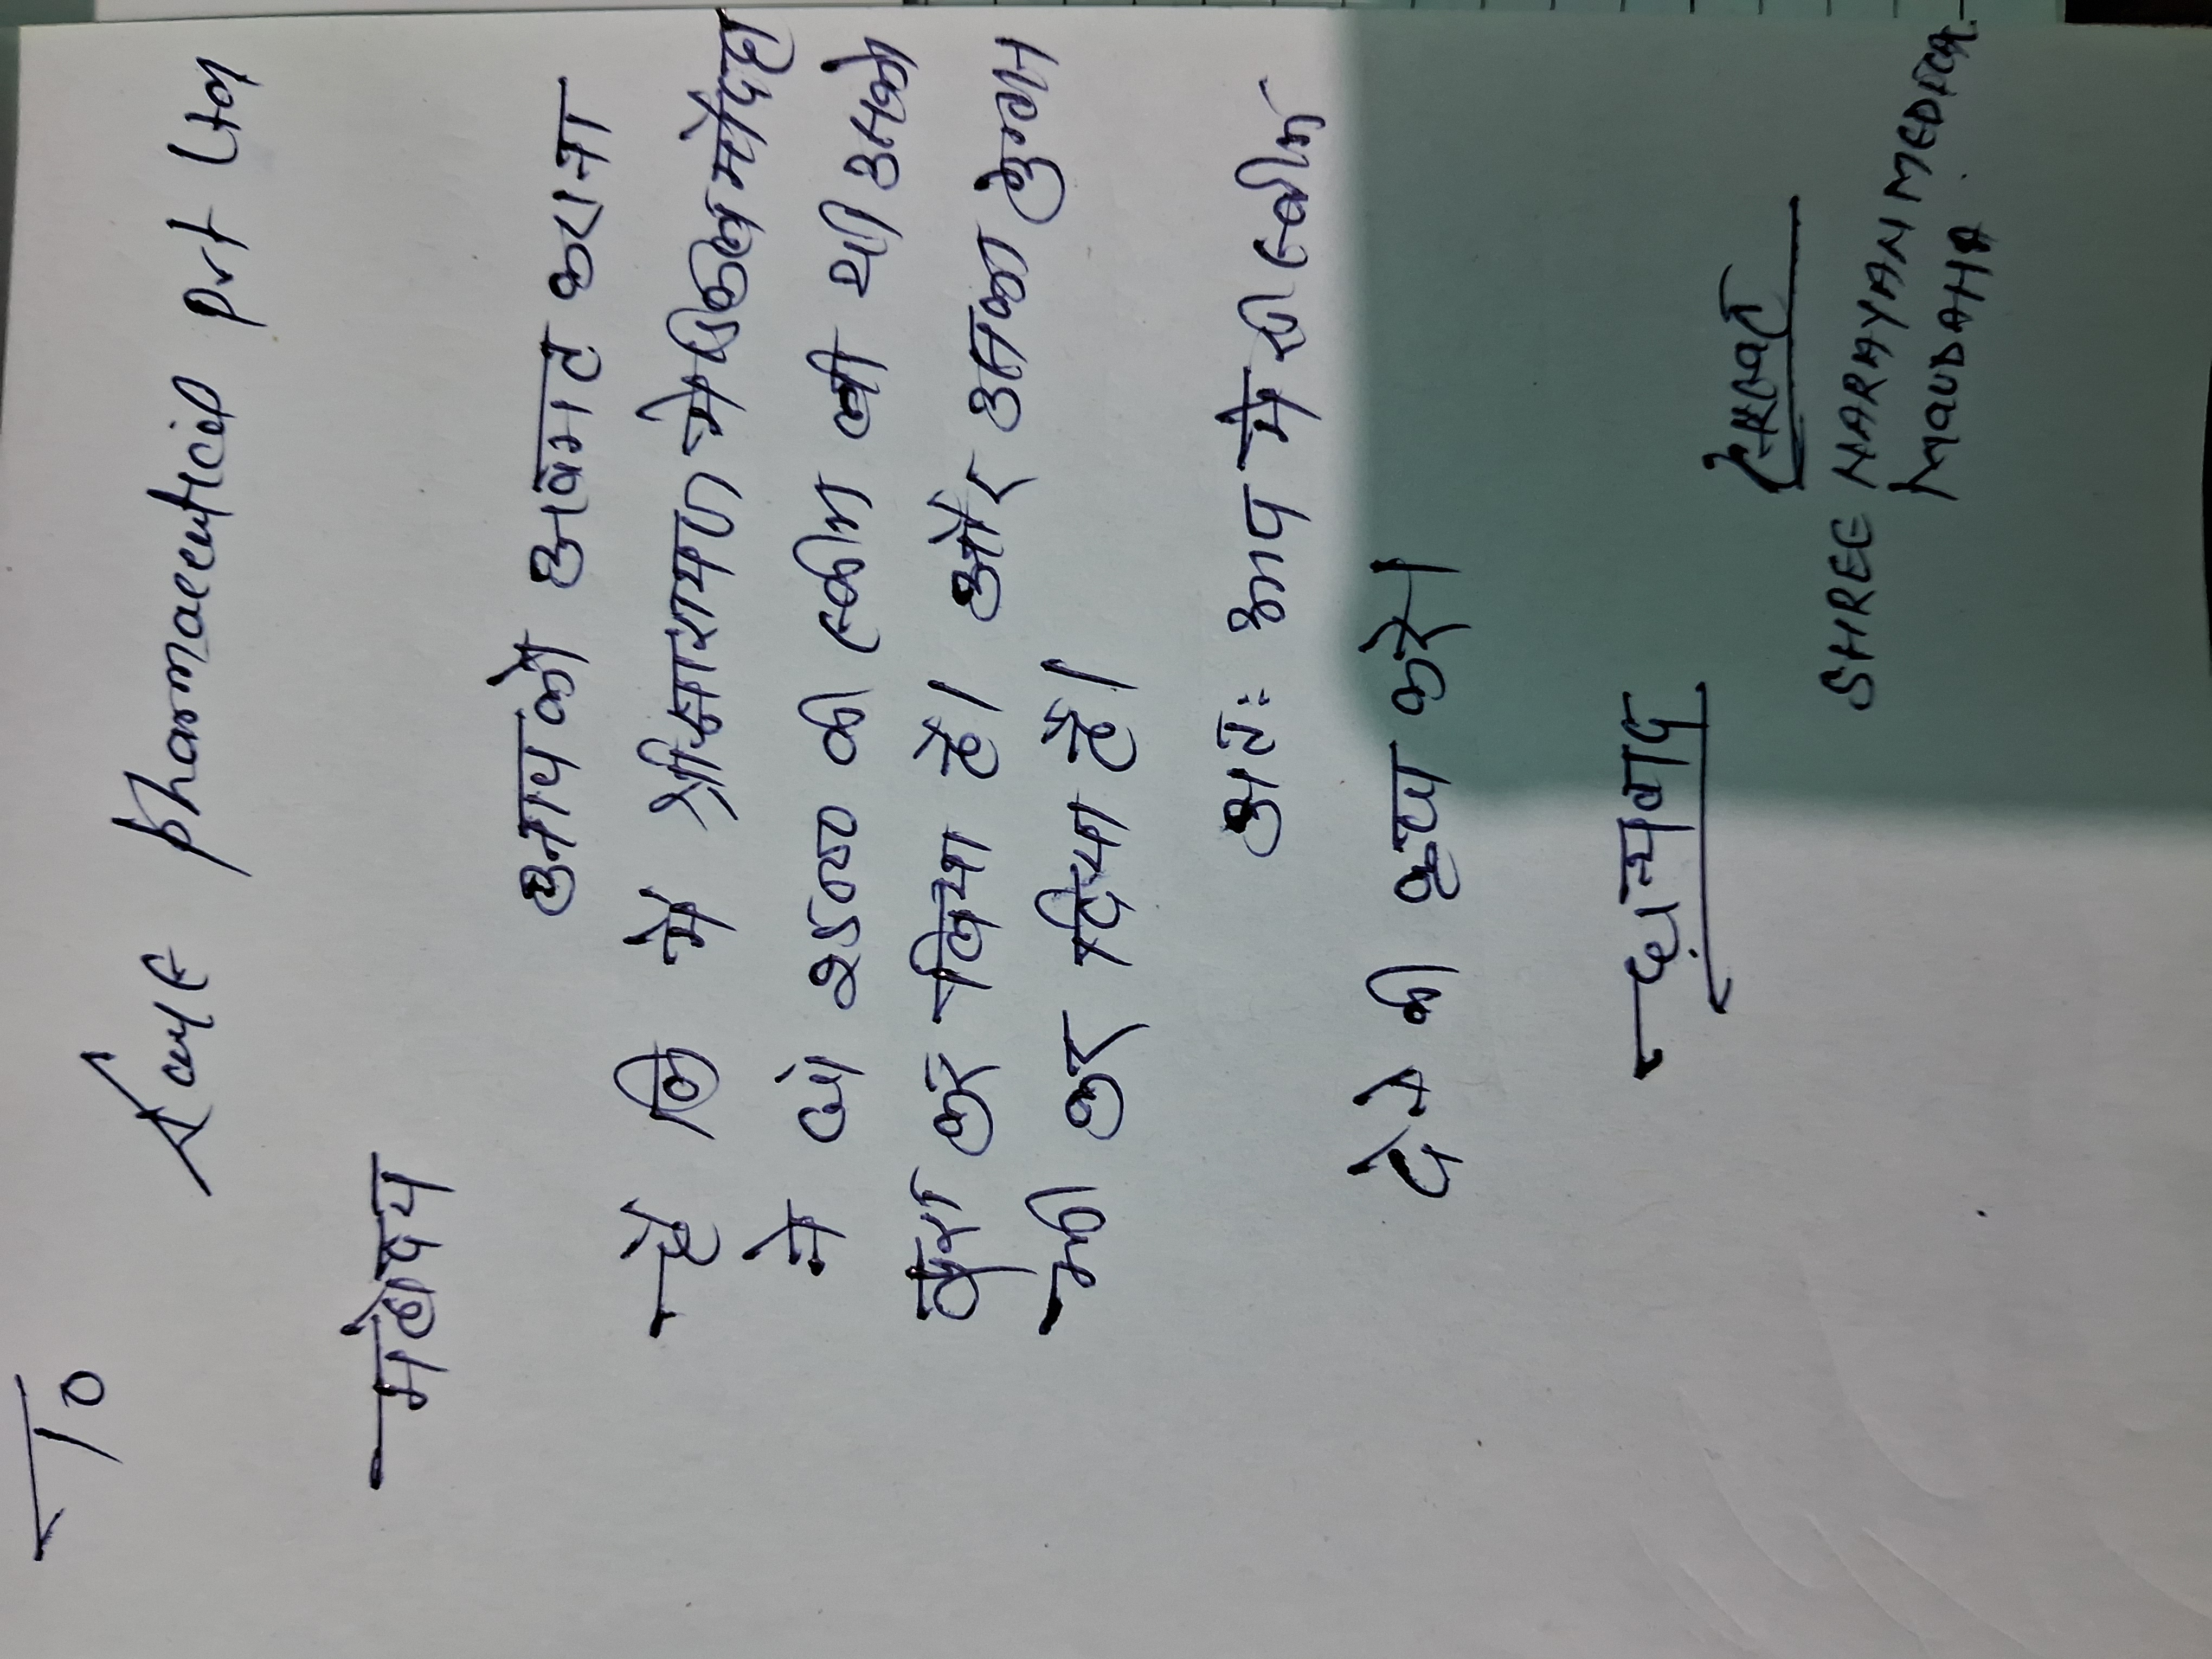 To
Pharmaceutical Pvt Ltd
महोदय
आपको अवगत कराना
है कि मै श्री नारायण मेडिकल मौदहा
ने जो की स्कीम ली थी उसको
पूरा कर लिया है। और उसका
कर दिया है।
अतः आप मेरी स्कीम
देने की कृपा करे।
धन्यवाद
SHREE NARAYAN MEDICAL
MAUDAHA